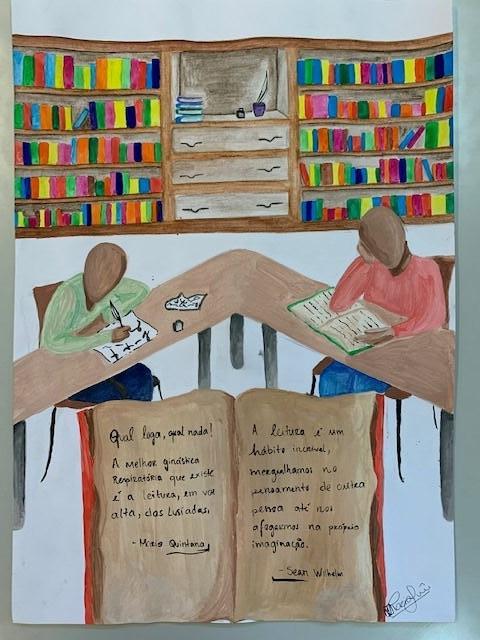 Qual Ioga, qual nada!
A melhor ginástica
Respiratória que existe
é a leitura, em voz
alta, dos Lusíadas.
- Mário Quintana
A leitura é um
hábito incrível,
mergulhamos no
pensamento de outra
pessoa até nos
afogarmos na própria
imaginação.
- Sean Wilhelm